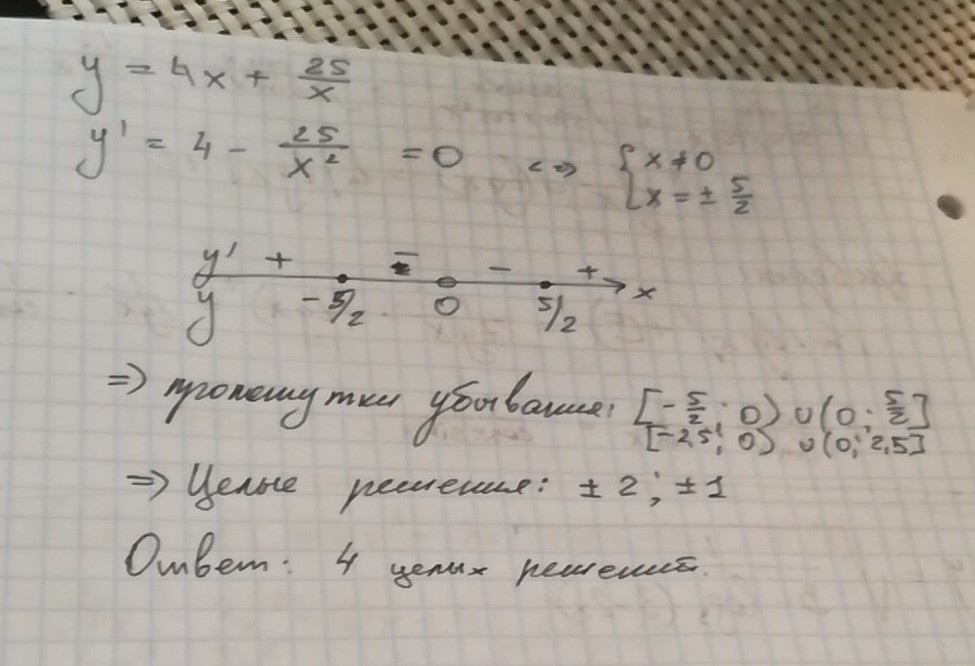 y = 4x + 25/x
y' = 4 - 25/x² = 0 <=> { x ≠ 0
x = ± 5/2
y' + - - + x
y -5/2 0 5/2
=> промежутки убывания: [-5/2; 0) ∪ (0; 5/2]
[-2,5; 0) ∪ (0; 2,5]
=> Целые решения: ±2; ±1
Ответ: 4 целых решений.